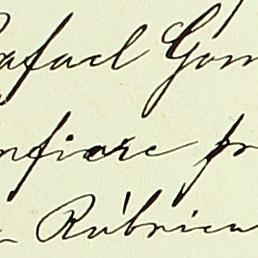 Rafael Gom
nfiere pr
Rúbrica